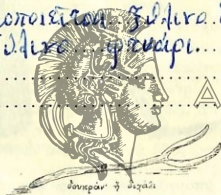 ξύλινο
ύλινο.... φτυάρι...
Α
δουκράν' ἢ διχάλι